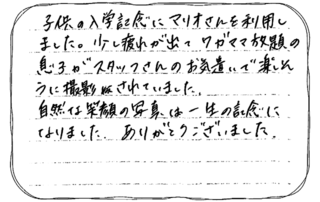 子供の入学記念にマリオさんを利用し
ました。少し疲れが出てワガママ放題の
息子がスタッフさんのお気遣いで楽しそ
うに撮影されていました。
自然な笑顔の写真は一生の記念に
なりました。ありがとうございました。